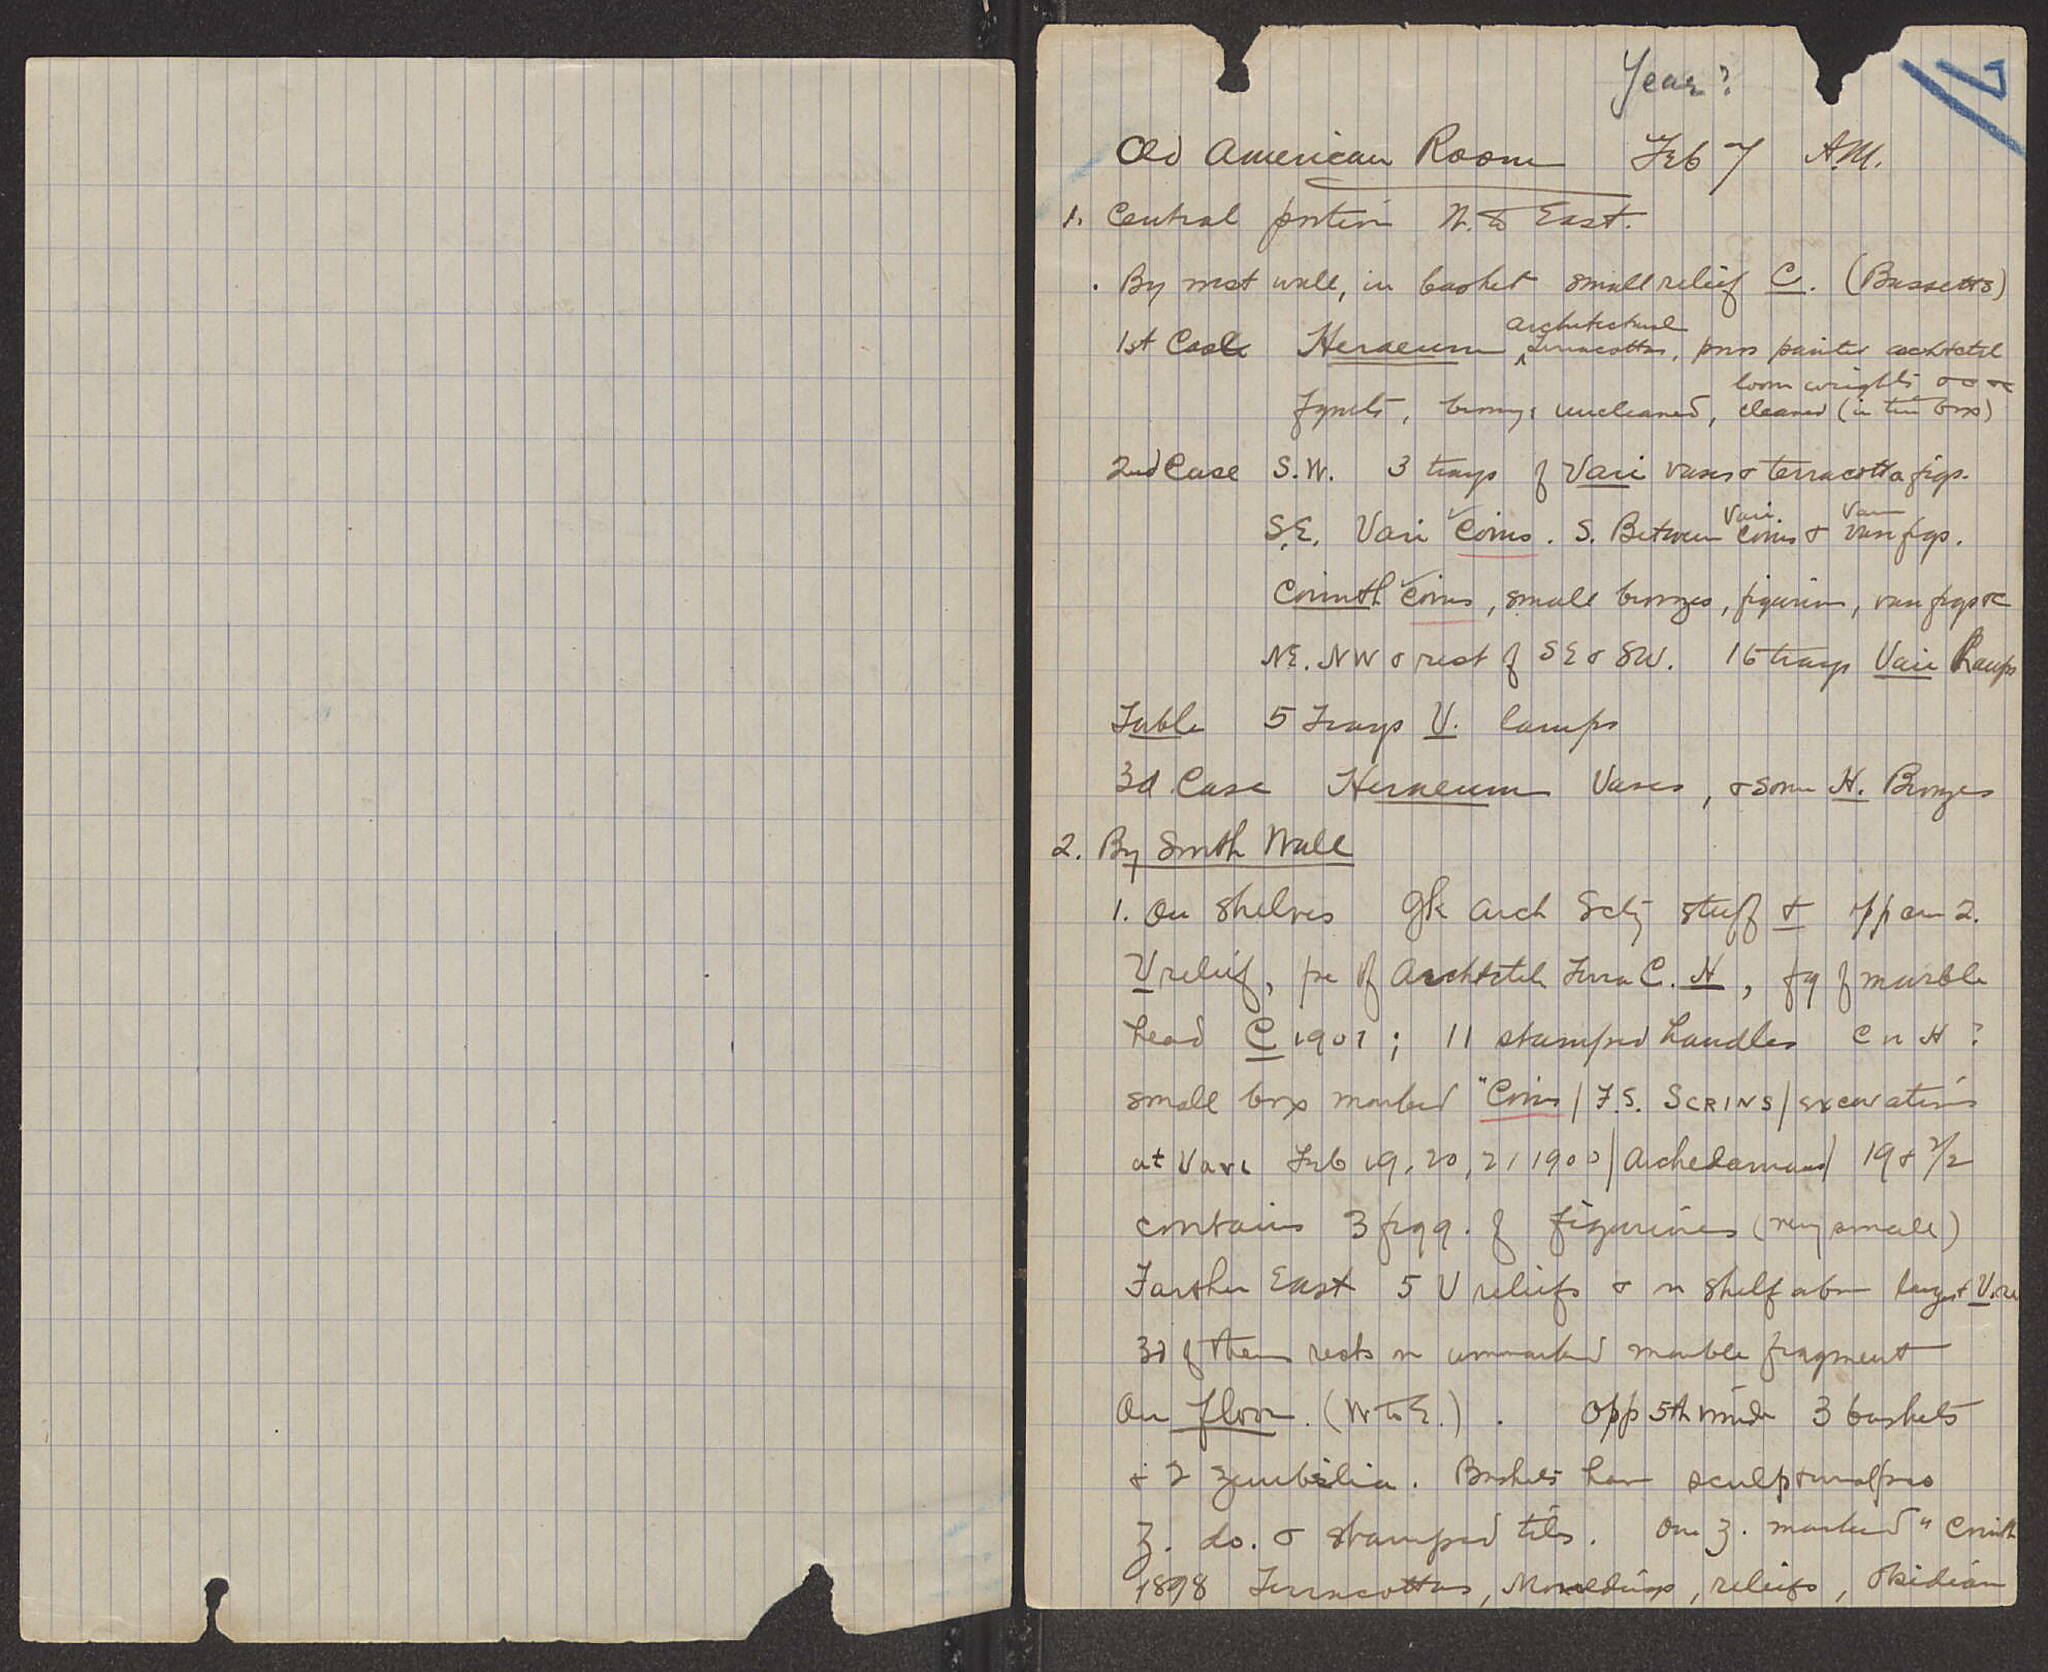 Year?
Old American Room Feb 7 A.M.
1. Central portion W. to East.
. By west wall, in basket small relief C. (Bassetts)
architectural
1st Case Heraeum terracottas, poros painted archtctl
loom weights
fgmts, bronzes uncleaned, cleaned (in tin box)
2nd Case S.W. 3 trays of Vari vases & terracotta figs.
Vari. Vari
S.E. Vari Coins. S. Between Coins & vase figs.
Corinth Coins, small bronzes, figurines, vase figs &c
NE. NW & rest of SE & SW. 16 trays Vari Lamps
Table 5 Trays V. lamps
3d Case Heraeum Vases, & some H. Bronzes
2. By South Wall
1. On shelves Gk Arch Scty stuff & opp case 2.
V relief, pc of Archtctl Terra C. H, fg of marble
head C 1901; 11 stamped handles C or H?
small box marked "Coins / F.S. SCRINS / excavations
at Vari Feb 19, 20, 21 1900 / Archedamus / 19 & 1/2
contains 3 frgg. of figurines (very small)
Farther East 5 V reliefs & on shelf above largest V. re
3d of them rests on unmarked marble fragment
On floor. (W to E.). Opp 5th 3 baskets
& 2 zembilia. Baskets have sculptural pcs
Z. do. & stamped tiles. One z. marked "Corinth
1898 Terracottas, Mouldings, reliefs, Obsidian